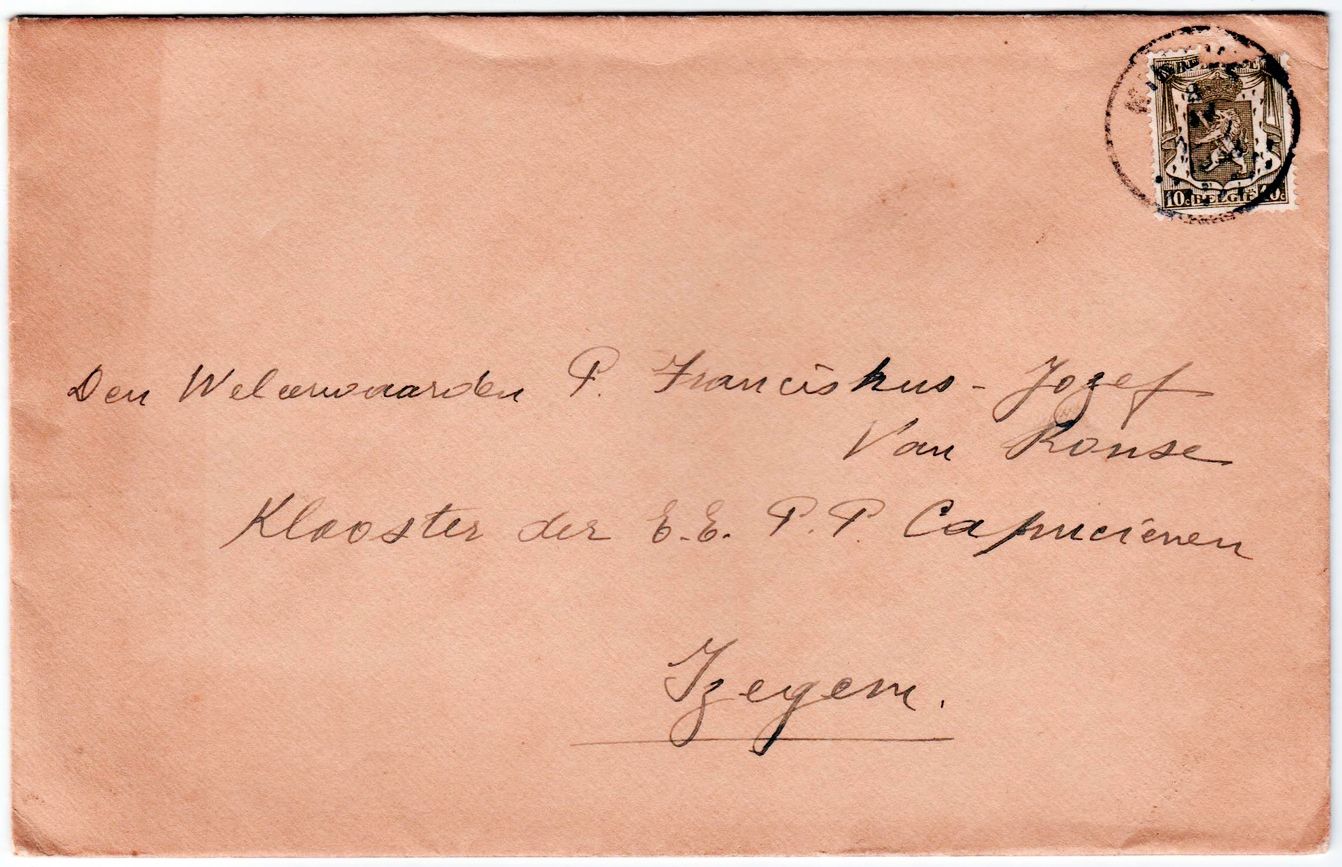 10c BELGIË 10c
Den Weleerwaarden P. Franciskus - Jozef
Van Ronse
Klooster der E.E. P.P. Capucienen
Izegem.